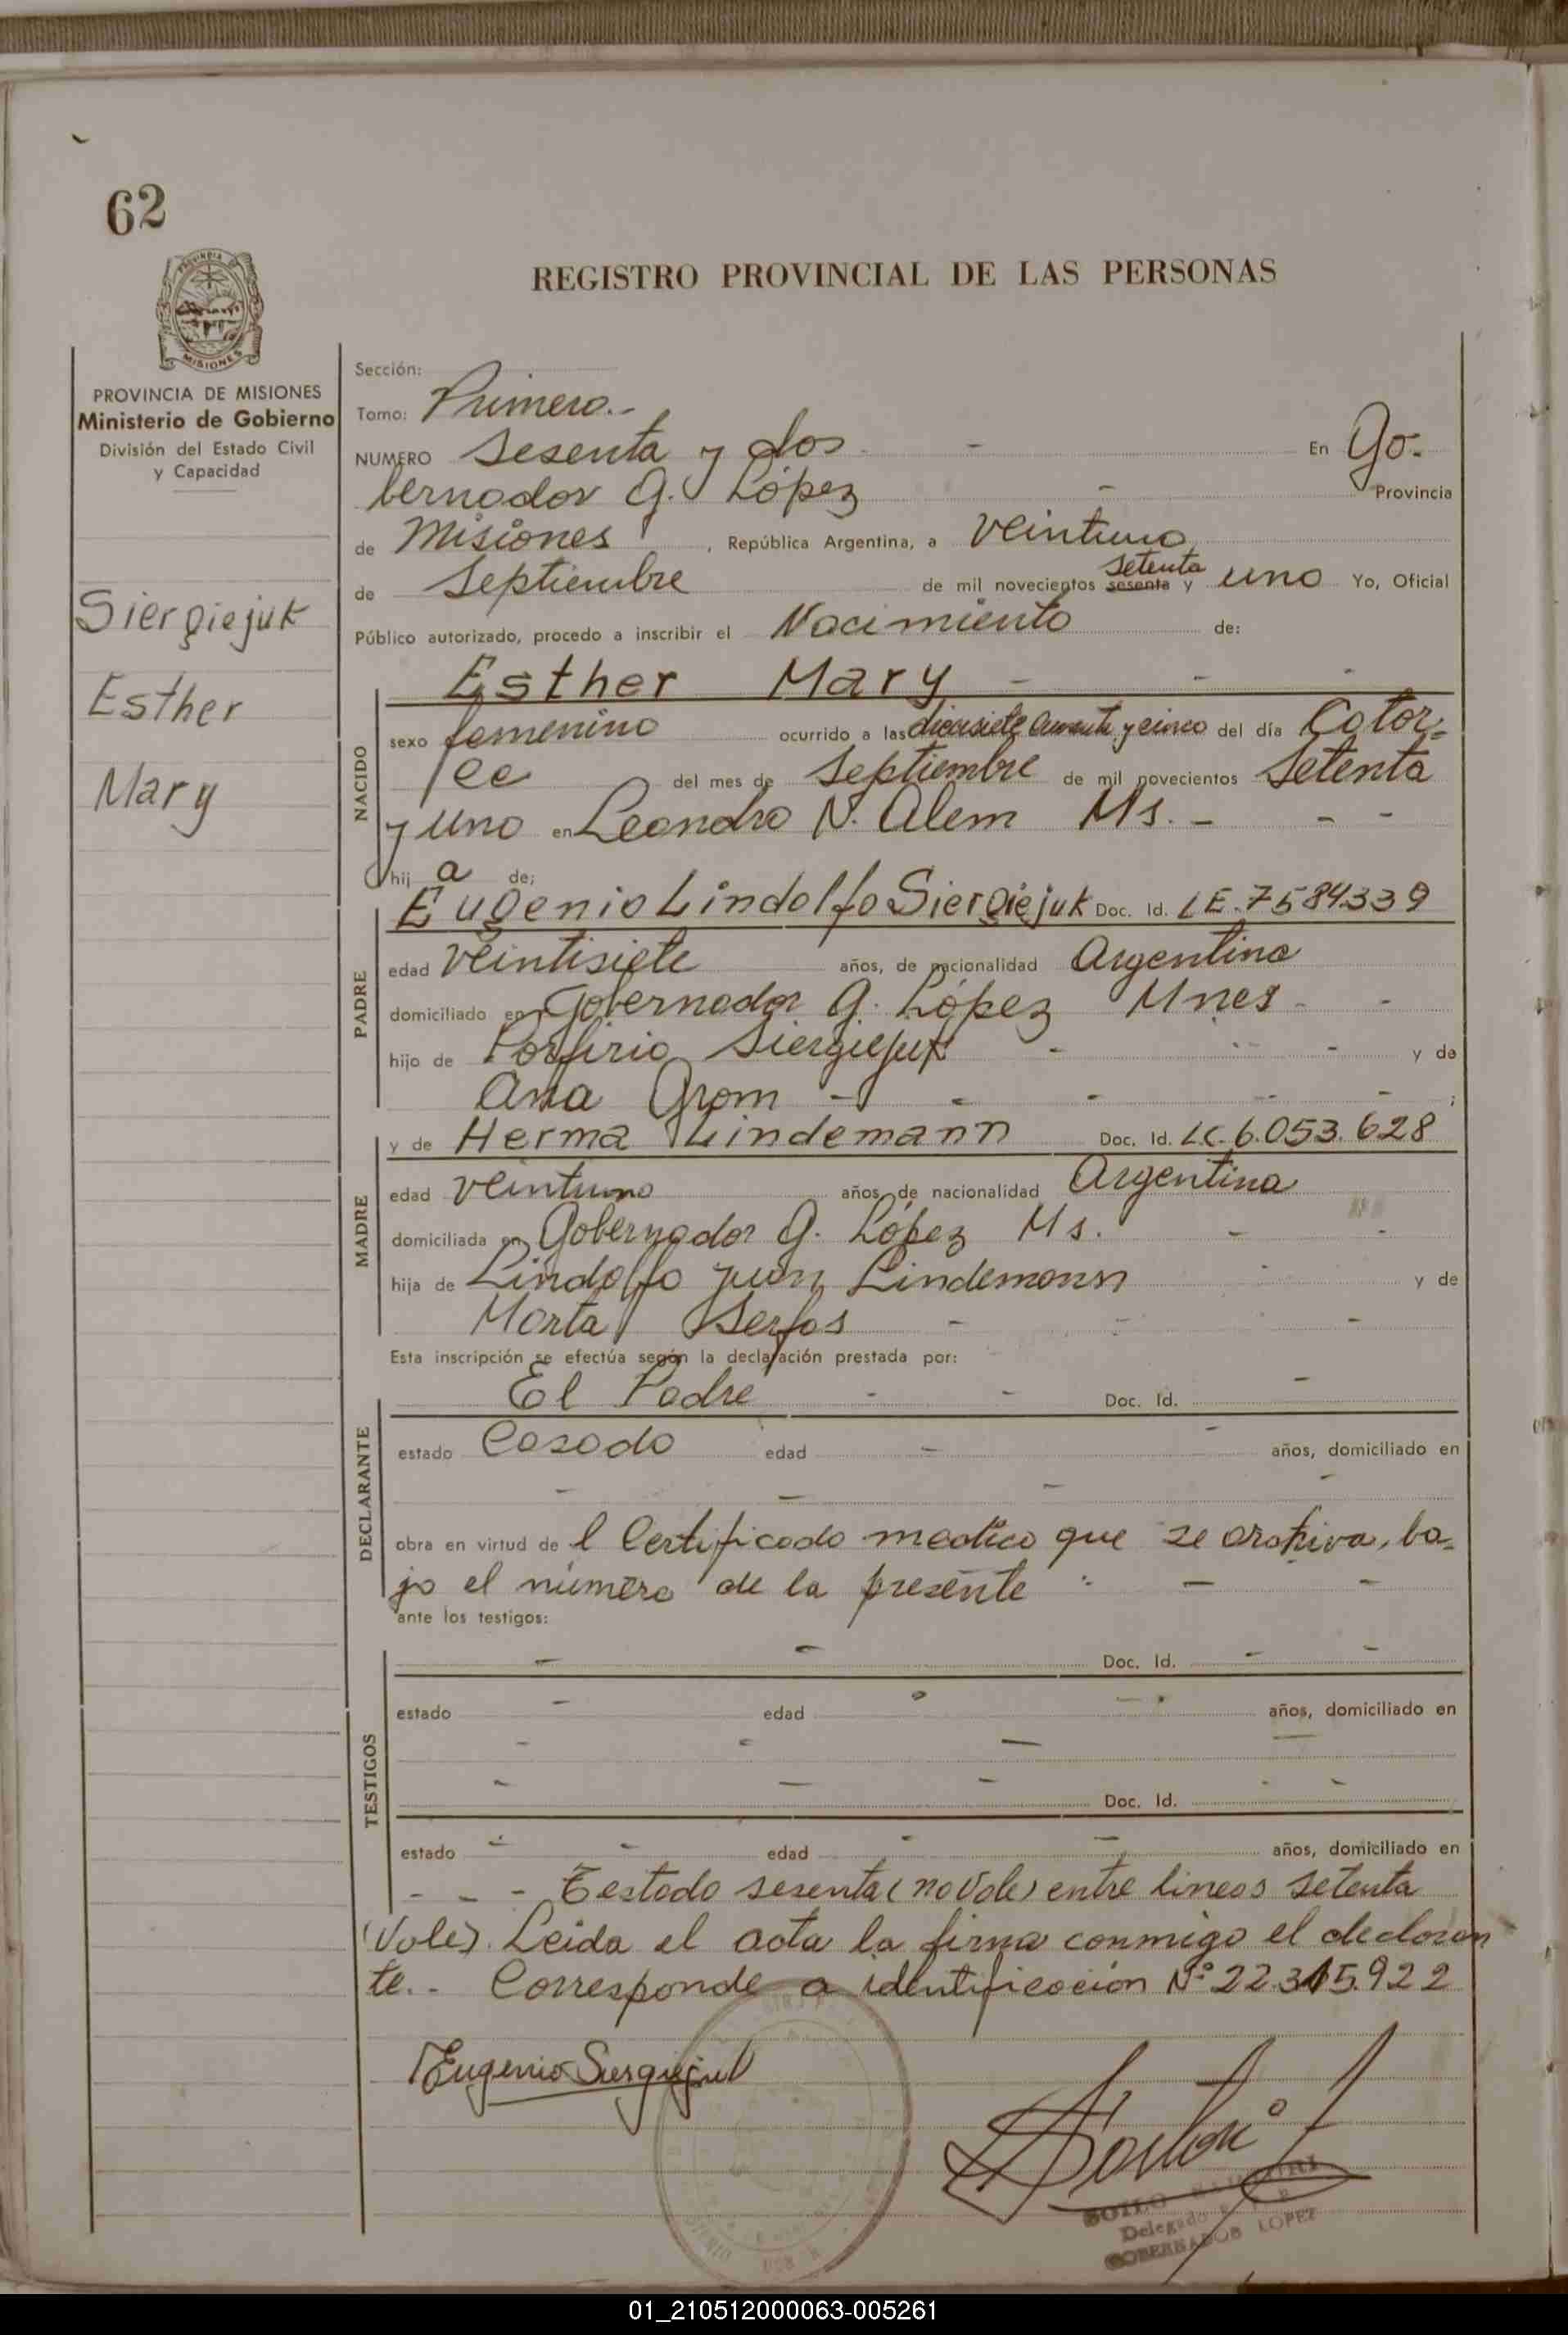 62
PROVINCIA
MISIONES
REGISTRO PROVINCIAL DE LAS PERSONAS
PROVINCIA DE MISIONES
Ministerio de Gobierno
División del Estado Civil
y Capacidad
Siergiejuk
Esther
Mary
Sección:
Tomo: Primero.-
NUMERO Sesenta y dos - En Go-
bernador G. López - Provincia
de Misiones, República Argentina, a veintiuno
de Septiembre de mil novecientos setenta sesenta y uno Yo, Oficial
Público autorizado, procedo a inscribir el Nacimiento de:
Esther Mary - - -
NACIDO
sexo femenino ocurrido a las diecisiete cuarenta y cinco del día Cator-
ce del mes de Septiembre de mil novecientos Setenta
y uno en Leandro N. Alem Ms. - - -
hija de;
PADRE
Eugenio Lindolfo Siergiejuk Doc. Id. LE.7584339
edad veintisiete años, de nacionalidad Argentina
domiciliado en Gobernador G. López Mnes - -
hijo de Porfirio Siergiejuk - - - y de
Ana Grom - - - - - ;
MADRE
y de Herma Lindemann Doc. Id. LC.6.053.628
edad veintiuno años de nacionalidad Argentina
domiciliada en Gobernador G. López Ms. - -
hija de Lindolfo Juan Lindemann - y de
Marta Serfas - - -
Esta inscripción se efectúa según la declaración prestada por:
DECLARANTE
El Padre - - Doc. Id. -
estado Casado edad - - años, domiciliado en
- - - -
obra en virtud de l Certificado medico que se archiva, ba-
jo el número de la presente - - -
ante los testigos:
TESTIGOS
- - Doc. Id. - -
estado - edad - - años, domiciliado en
- - - -
- - - Doc. Id. - -
estado - - edad - - años, domiciliado en
- - - Testado sesenta (no Vale) entre lineas setenta
(Vale). Leida el acta la firma conmigo el declaran
te.- Corresponde a identificación Nº 22.315.922
Eugenio Siergiejuk
Delegado
GOBERNADOR LOPEZ
01_210512000063-005261